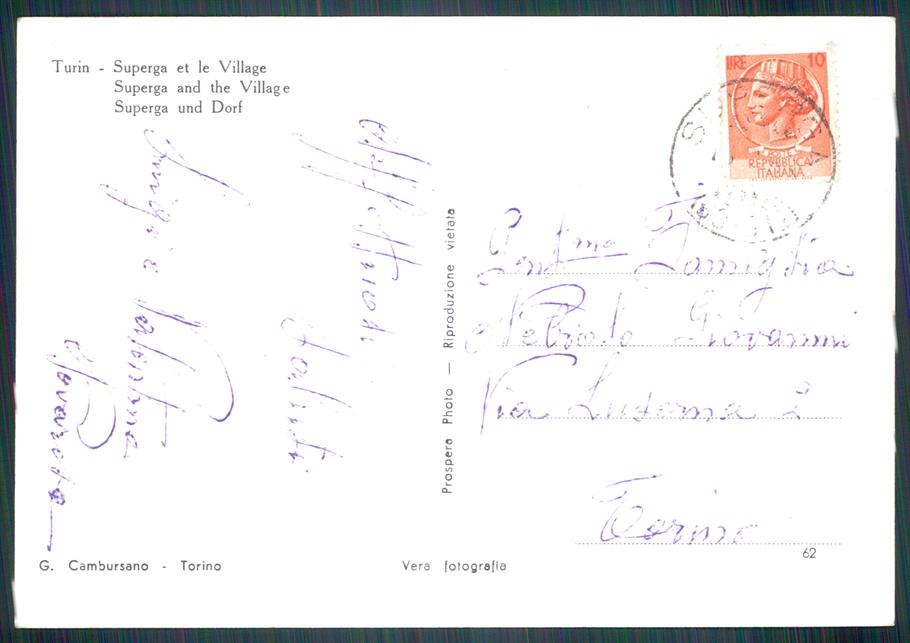 Turin - Superga et le Village
Superga and the Village
Superga und Dorf
LIRE 10
POSTE
REPVBBLICA
ITALIANA
SUPERGA
Affettuosi
saluti
Luigi e
Prospera Photo — Riproduzione vietata
Gent.ma Famiglia
Giovanni
Via Luserna 2
Torino
62
G. Cambursano - Torino
Vera fotografia